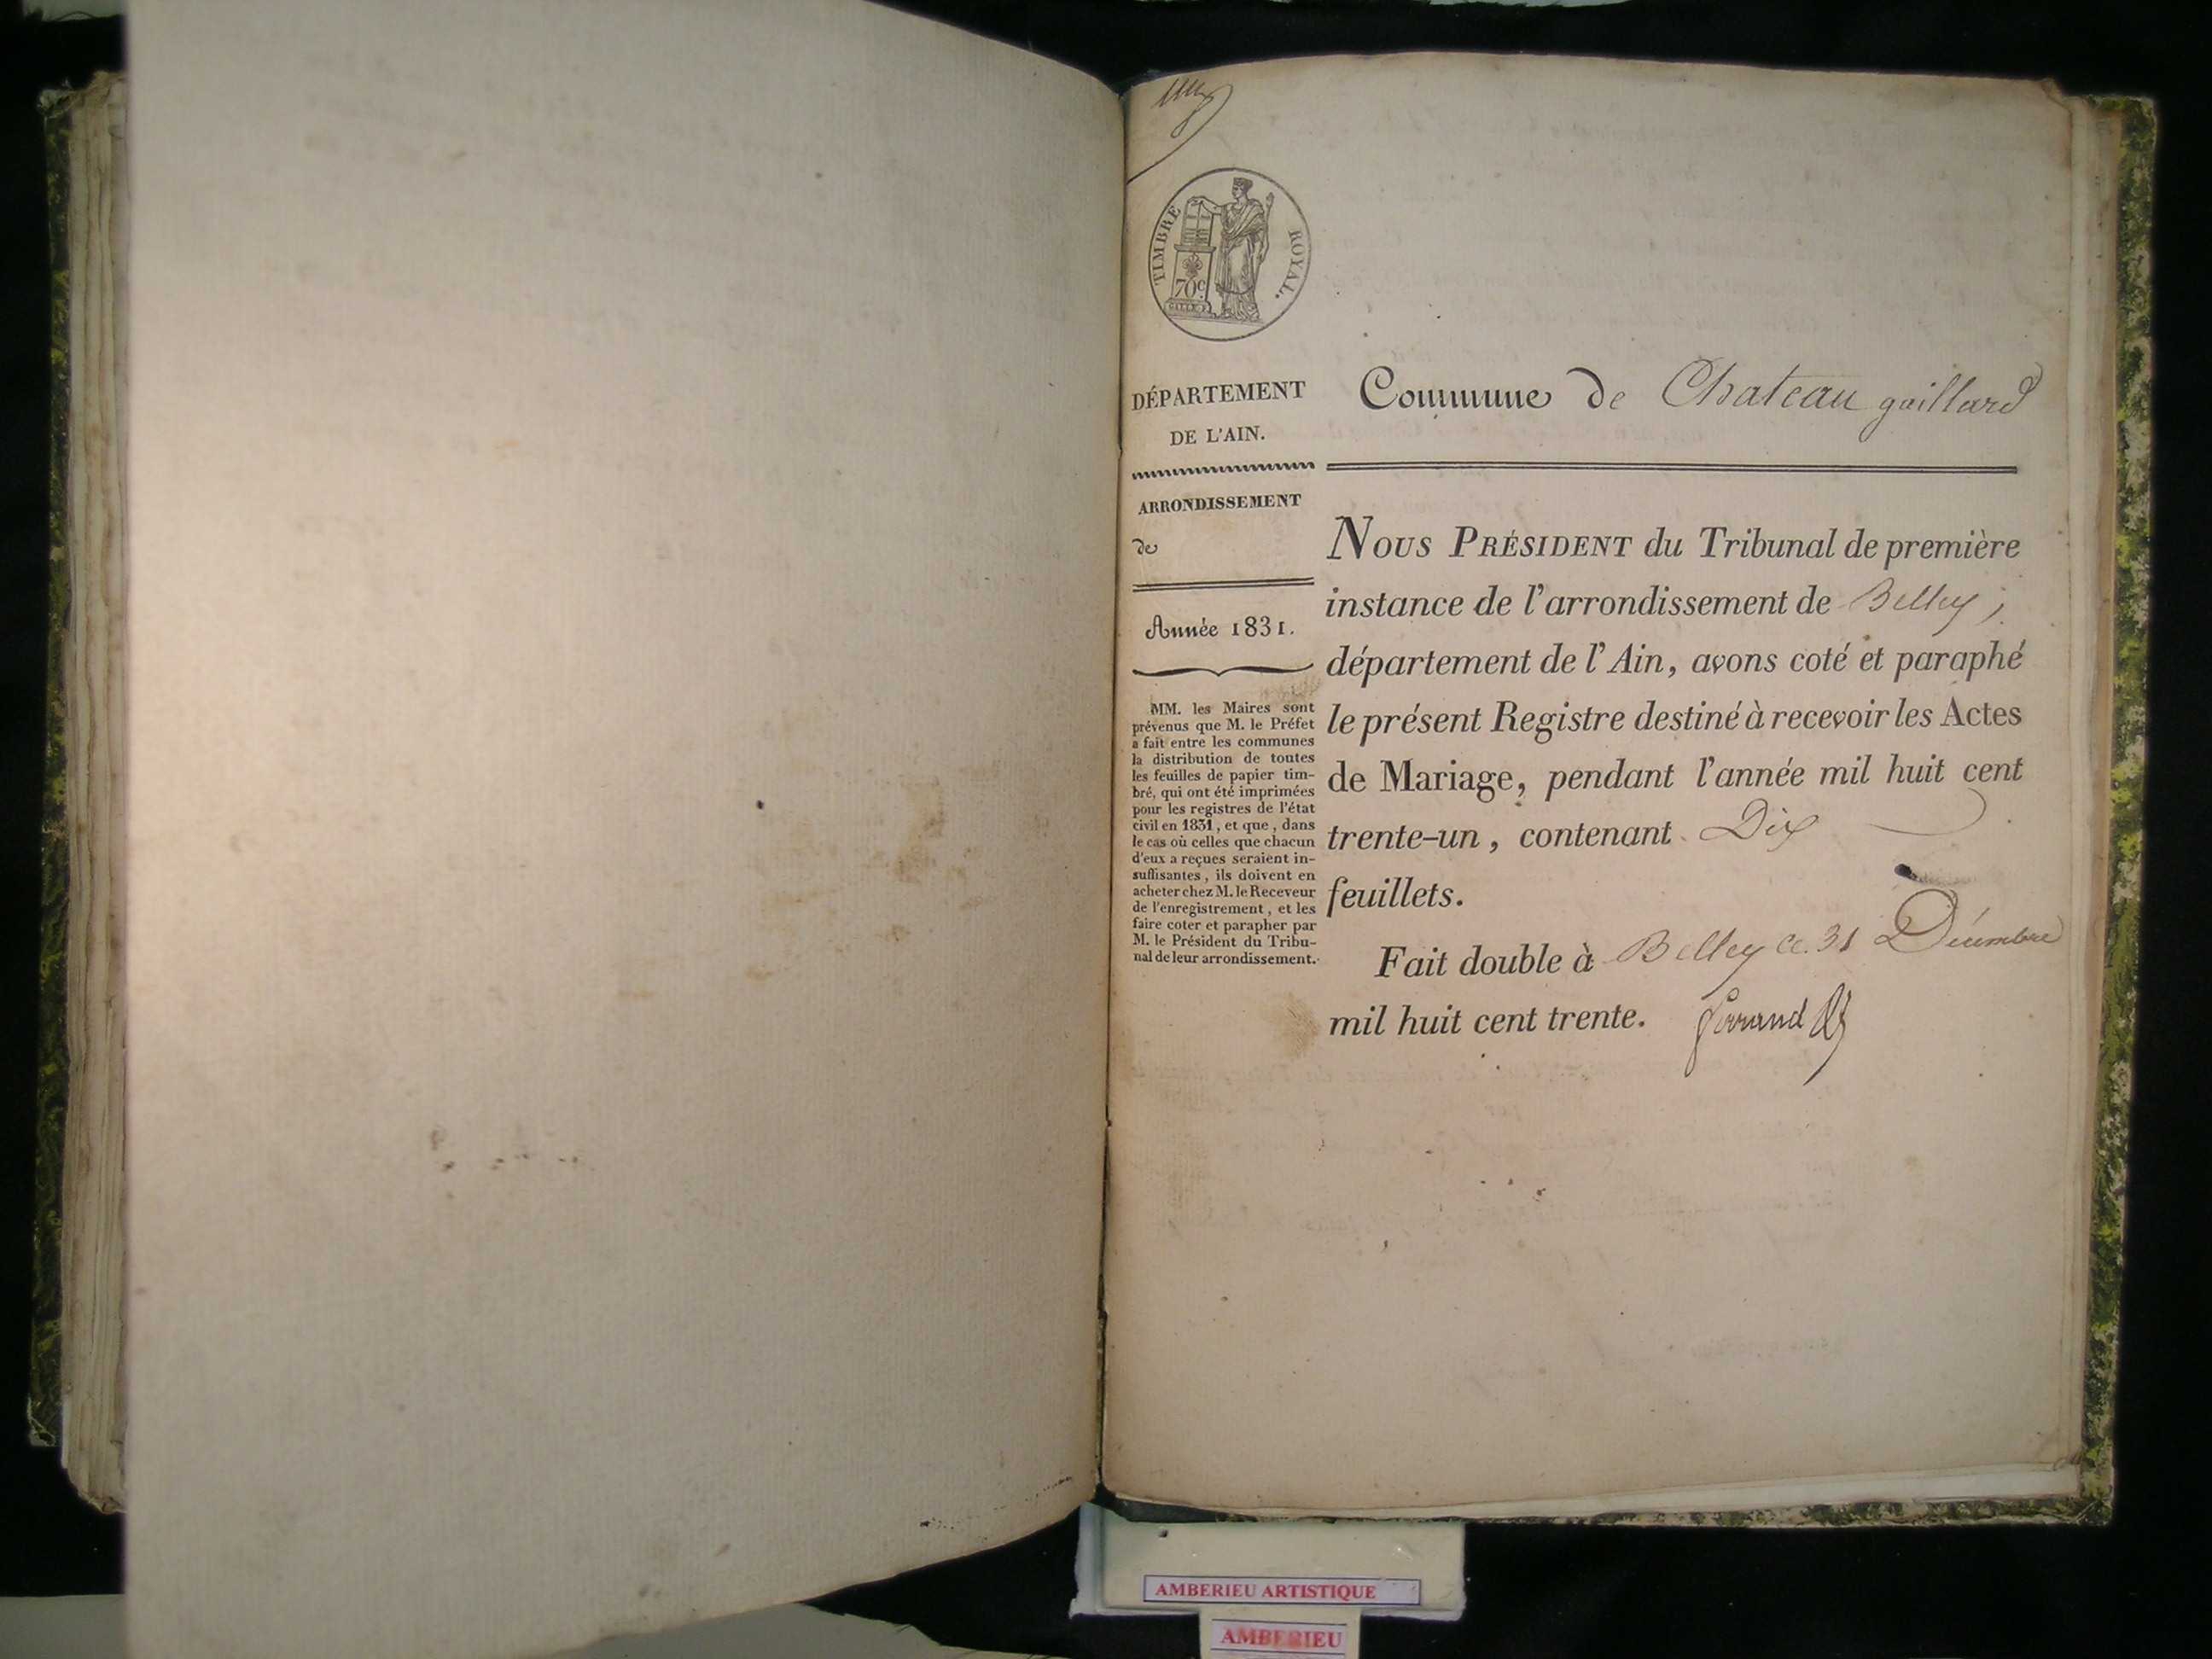 TIMBRE ROYAL.
70c
DÉPARTEMENT
DE L'AIN.
ARRONDISSEMENT
de
Année 1831.
MM. les Maires sont
prévenus que M. le Préfet
a fait entre les communes
la distribution de toutes
les feuilles de papier tim-
bré, qui ont été imprimées
pour les registres de l'état
civil en 1831, et que, dans
le cas où celles que chacun
d'eux a reçues seraient in-
suffisantes, ils doivent en
acheter chez M. le Receveur
de l'enregistrement, et les
faire coter et parapher par
M. le Président du Tribu-
nal de leur arrondissement.
Commune de Chateau gaillard
NOUS PRÉSIDENT du Tribunal de première
instance de l'arrondissement de Belley,
département de l'Ain, avons coté et paraphé
le présent Registre destiné à recevoir les Actes
de Mariage, pendant l'année mil huit cent
trente-un, contenant Dix
feuillets.
Fait double à Belley ce 31 Décembre
mil huit cent trente.
AMBERIEU ARTISTIQUE
AMBERIEU